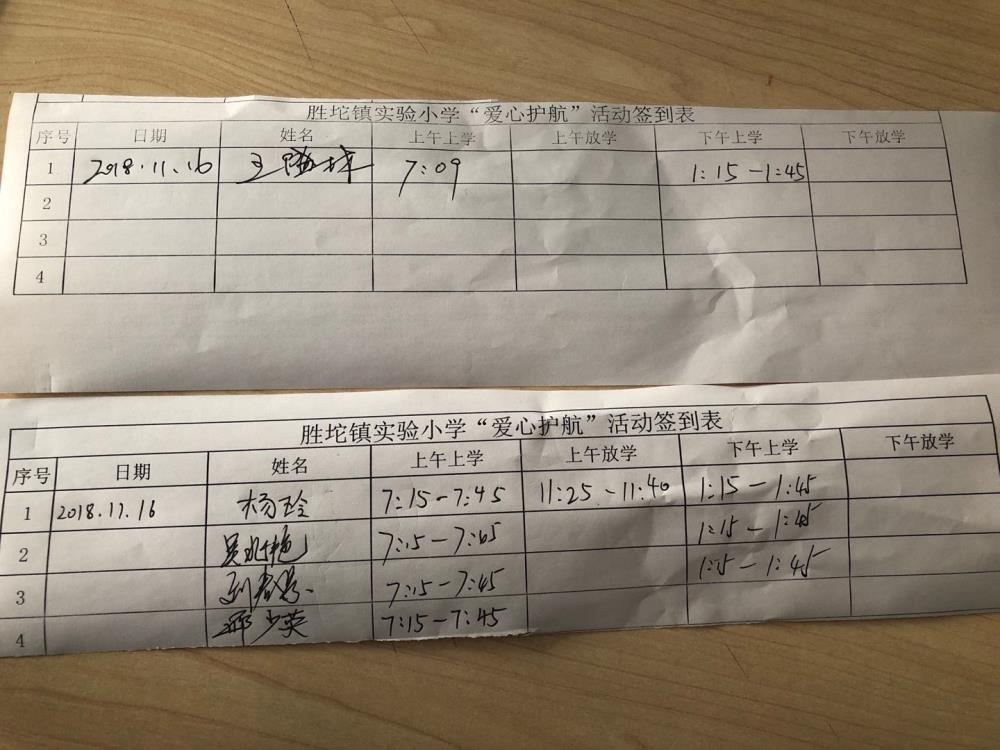 胜坨镇实验小学“爱心护航”活动签到表
序号 日期 姓名 上午上学 上午放学 下午上学 下午放学
1 2018.11.16 王 7:09 1:15-1:45
2
3
4
胜坨镇实验小学“爱心护航”活动签到表
序号 日期 姓名 上午上学 上午放学 下午上学 下午放学
1 2018.11.16 杨玲 7:15-7:45 11:25-11:40 1:15-1:45
2 吴 艳 7:15-7:45 1:15-1:45
3 刘 7:15-7:45 1:15-1:45
4 邢少英 7:15-7:45